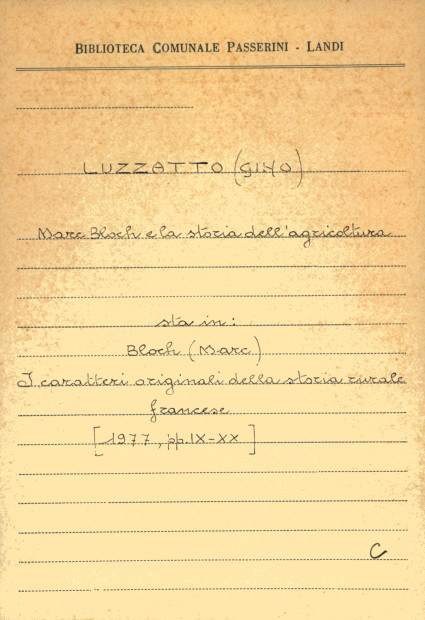 BIBLIOTECA COMUNALE PASSERINI - LANDI
LUZZATTO (GINO)
Marc Bloch e la storia dell'agricoltura
sta in:
Bloch (Marc)
I caratteri originali della storia rurale
francese
[1977, pp. IX-XX]
C